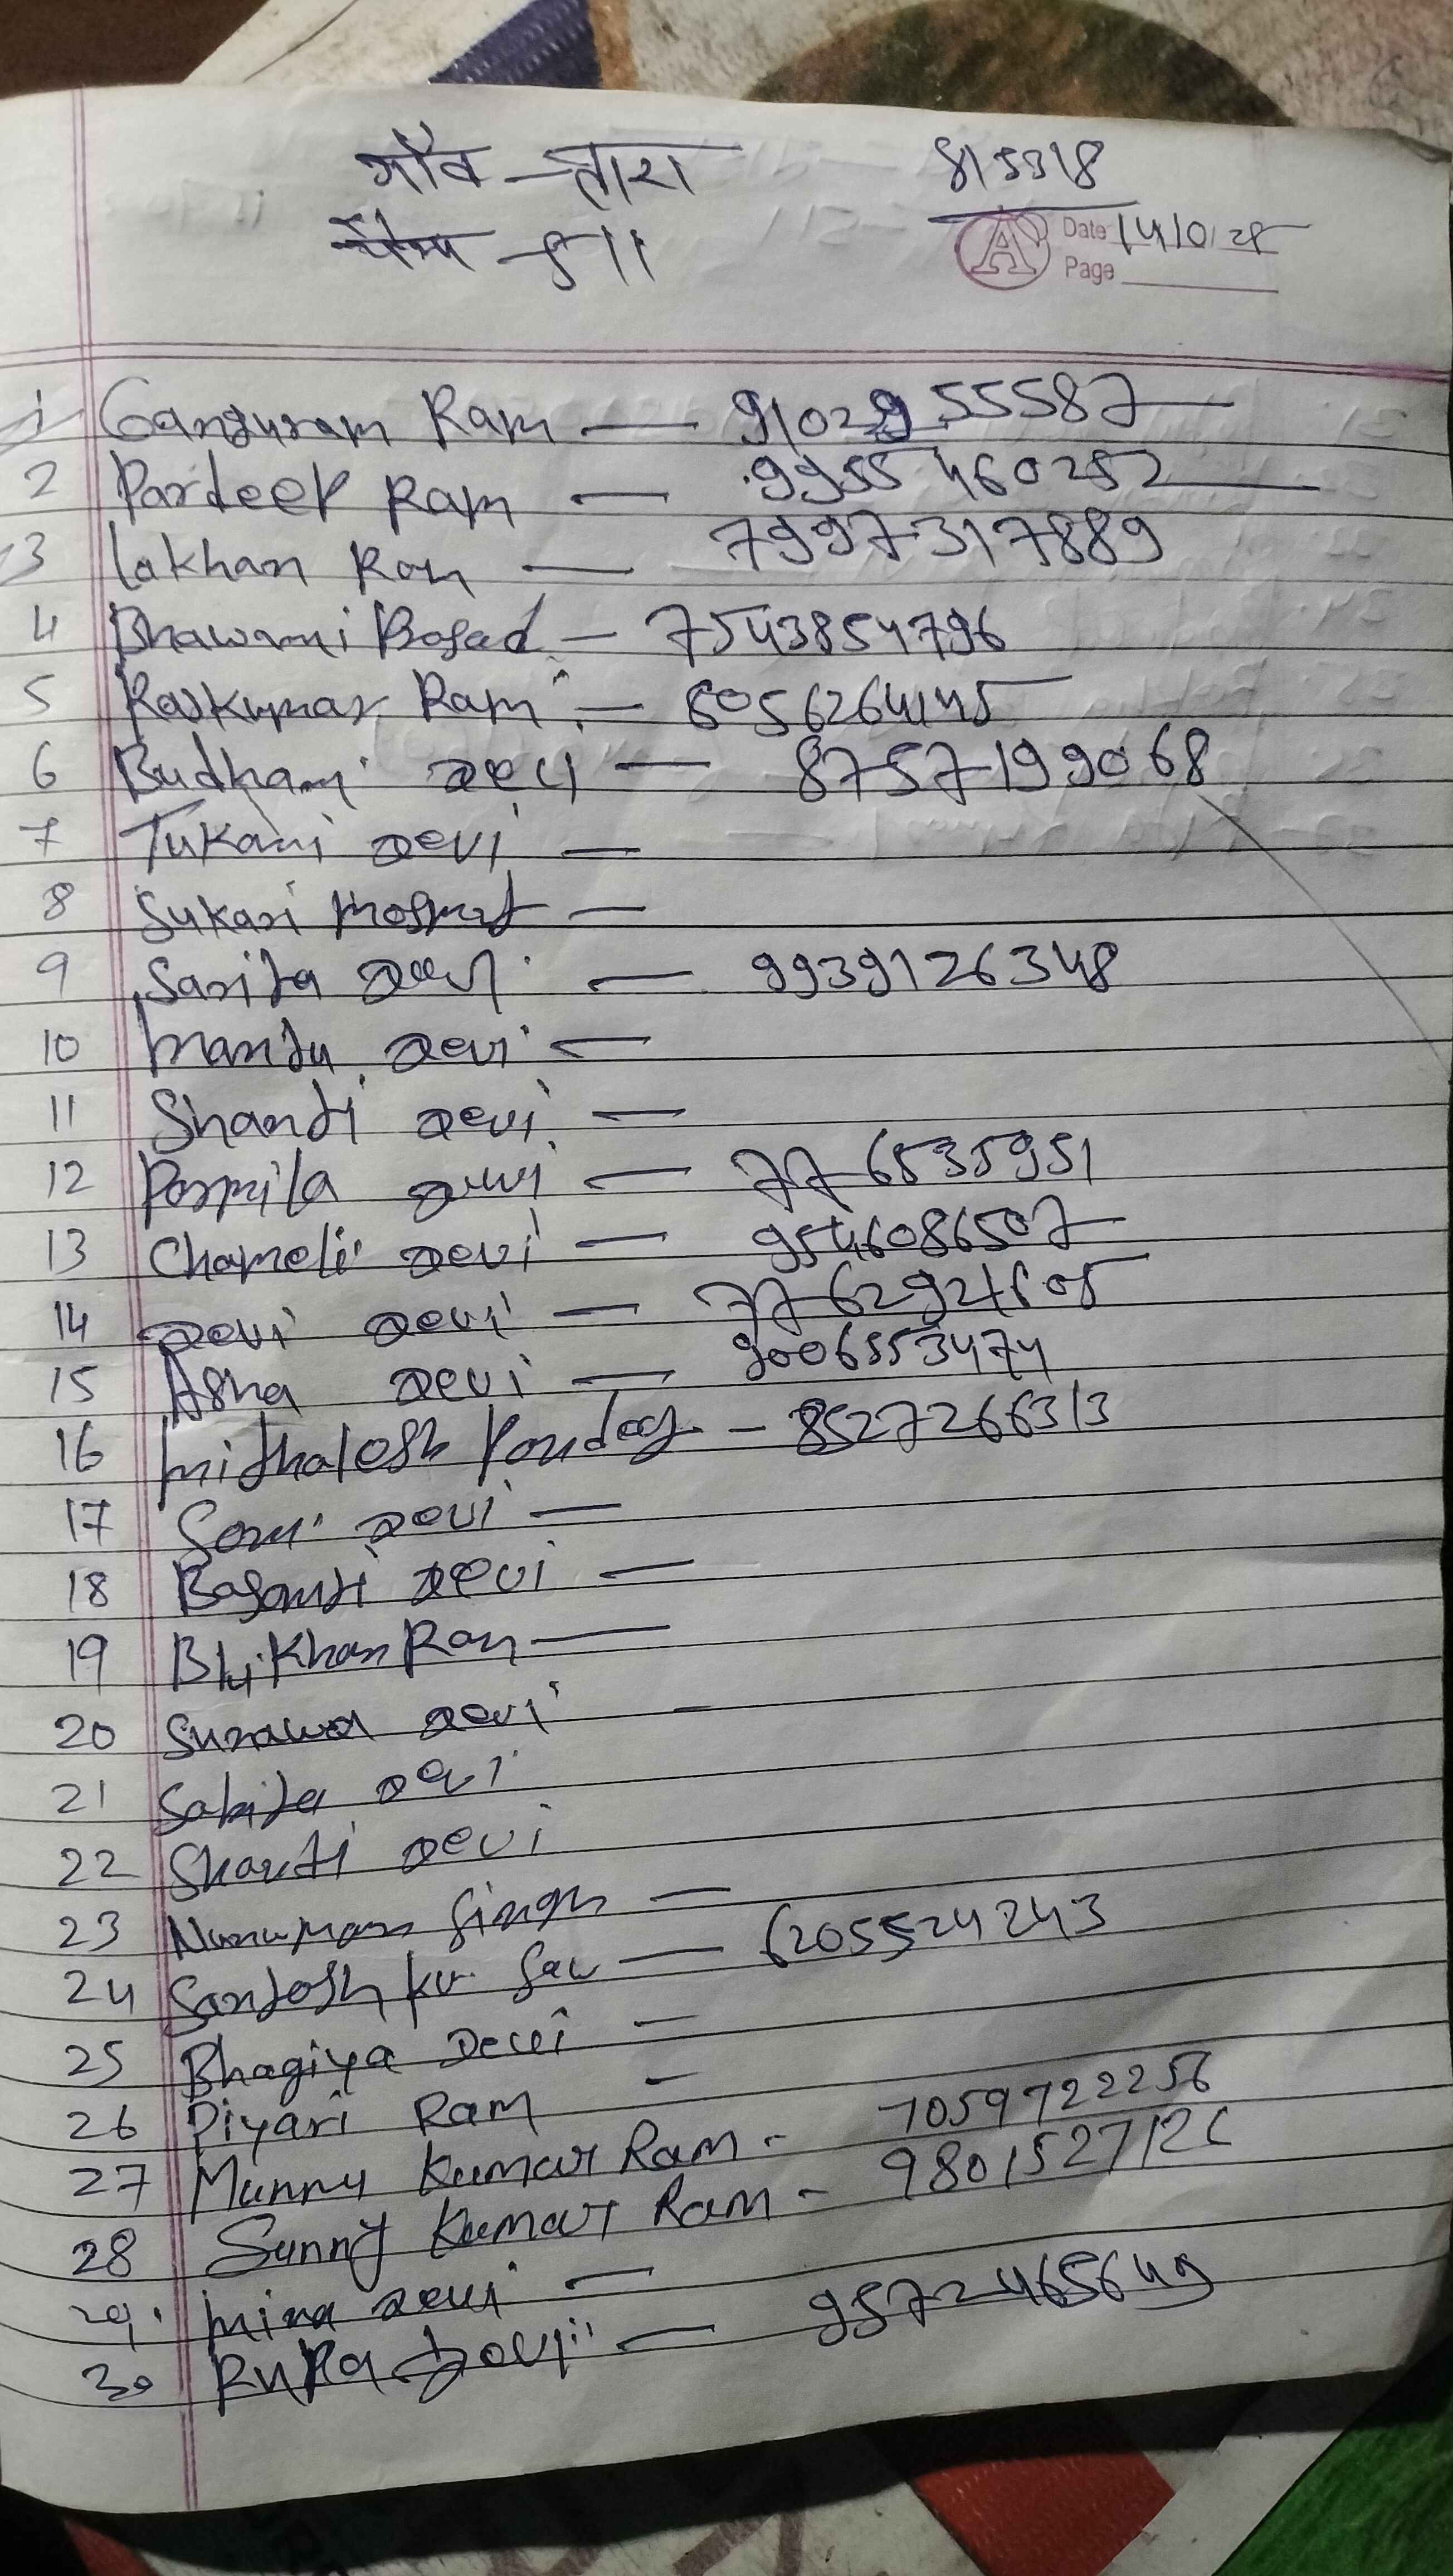 गाँव - तारा 815318
कैम्प - ६11 Date 14/10/25
A Page
1 Ganguram Ram — 9102955587
2 Pardeep Ram — 9955460252
3 Lakhan Ram — 7997317889
4 Bhawani Prasad — 7543854796
5 Rajkumar Ram — 6056264145
6 Budhani Devi — 8757199068
7 Tukani Devi —
8 Sukari Mosmat —
9 Sarita Devi — 9939126348
10 Manju Devi —
11 Shanti Devi —
12 Parmila Devi — 776535951
13 Chameli Devi — 9546086507
14 Devi Devi —
15 Asha Devi — 9006553474
16 Mithalesh Pandey - 8527266313
17 Soni Devi —
18 Basanti Devi —
19 Bhikhan Ram —
20 Devi -
21 Sabita Devi
22 Shanti Devi
23 Nunuman Singh —
24 Santosh Ku. Saw — 6205524243
25 Bhagiya Devi -
26 Piyari Ram -
27 Munny Kumar Ram - 7059722256
28 Sunny Kumar Ram -
29. Mina Devi —
30 Rupa Devi — 9572465649